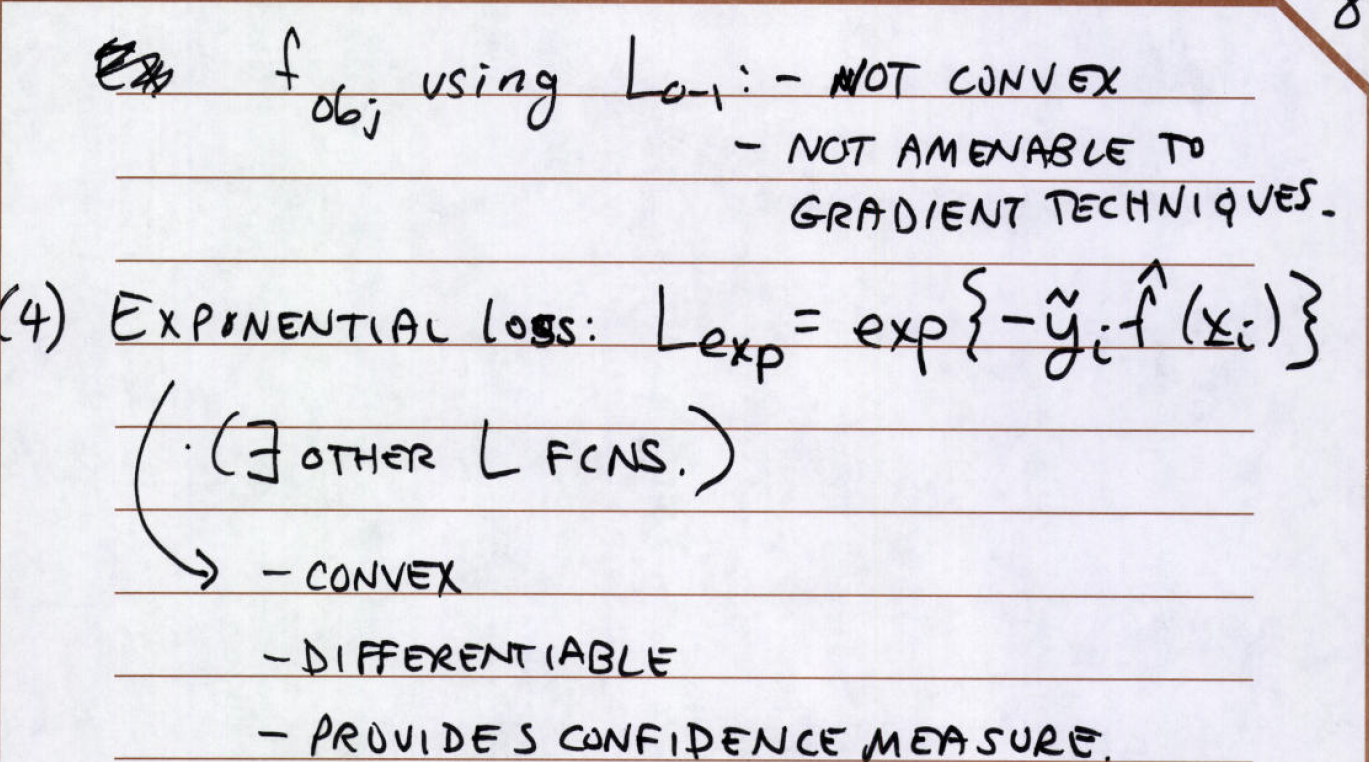 8
f_obj using L_0-1: - NOT CONVEX
- NOT AMENABLE TO
GRADIENT TECHNIQUES.
(4) EXPONENTIAL loss: L_exp = exp{-ỹ_i f̂(x̲_i)}
(∃ OTHER L FCNS.)
- CONVEX
- DIFFERENTIABLE
- PROVIDES CONFIDENCE MEASURE.